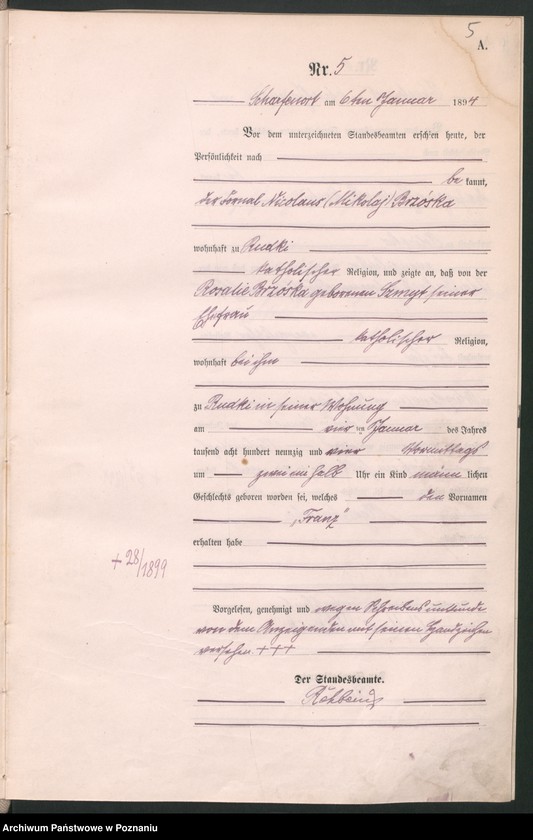 5
A.
Nr. 5
Scharfenort am 6ten Januar 1894
Vor dem unterzeichneten Standesbeamten erschien heute, der
Persönlichkeit nach
be kannt,
der Fornal Nicolaus (Mikolaj) Brzóska
wohnhaft zu Rudki
katholischer Religion, und zeigte an, daß von der
Rosalie Brzóska geborenen Szmyt seiner
Ehefrau
katholischer Religion,
wohnhaft bei ihm
zu Rudki in seiner Wohnung
am vier ten Januar des Jahres
tausend acht hundert neunzig und vier Vormittags
um zwei ein halb Uhr ein Kind männ lichen
Geschlechts geboren worden sei, welches den Vornamen
„Franz"
erhalten habe
+ 28/1899
Vorgelesen, genehmigt und wegen Schreibensunkunde
von dem Anzeigenden mit seinem Handzeichen
versehen. +++
Der Standesbeamte.
Archiwum Państwowe w Poznaniu